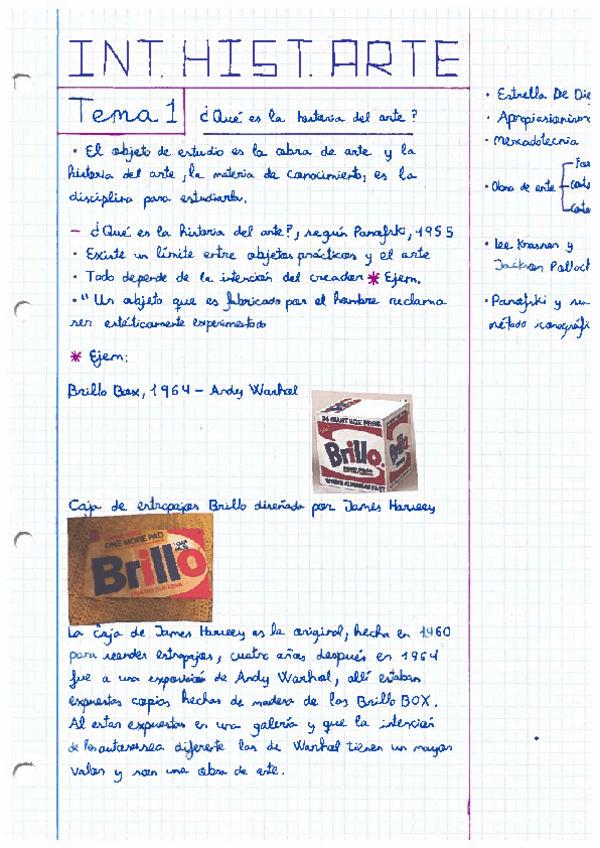 INT. HIST. ARTE
Tema 1 ¿Qué es la historia del arte?
• El objeto de estudio es la obra de arte y la
historia del arte, la materia de conocimiento, es la
disciplina para estudiarla.
- ¿Qué es la historia del arte?, según Panofski, 1955
• Existe un límite entre objetos prácticos y el arte
• Todo depende de la intención del creador * Ejem.
• "Un objeto que es fabricado por el hombre reclama
ser estéticamente experimentado
* Ejem:
Brillo Box, 1964 - Andy Warhol
24 GIANT SIZE PKGS.
Brillo
Caja de estropajos Brillo diseñada por James Harvey
ONE MORE PAD
Brillo
La caja de James Harvey es la original, hecha en 1960
para vender estropajos, cuatro años después en 1964
fue a una exposición de Andy Warhol, allí estaban
expuestas copias hechas de madera de las Brillo BOX.
Al estar expuestas en una galería y que la intención
de los autores sea diferente las de Warhol tienen un mayor
valor y son una obra de arte.
• Estrella De Die
• Apropiacionismo
• Mercadotecnia
• Obra de arte
• Lee Krasner y
Jackson Pollock
• Panofski y su
método iconográfi